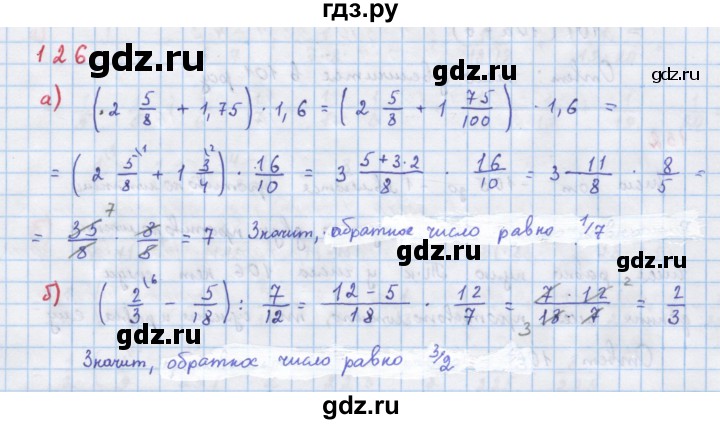 гдз.ру
126
gdz.ru gdz.ru
а) (2 5/8 + 1,75) · 1,6 = (2 5/8 + 1 75/100) · 1,6 =
= (2 5/8 \1 + 1 3/4 \2) · 16/10 = 3 (5+3·2)/8 · 16/10 = 3 · 11/8 · 8/5 =
= 35/8 · 8/8 7 = 7 Значит, обратное число равно 1/7
gdz.ru gdz.ru
б) (2/3 \6 − 5/18) : 7/12 = (12 − 5)/18 · 12/7 = (7 · 12)/(18 · 7) 2 3 = 2/3
Значит, обратное число равно 3/2
gdz.ru gdz.ru
gdz.ru